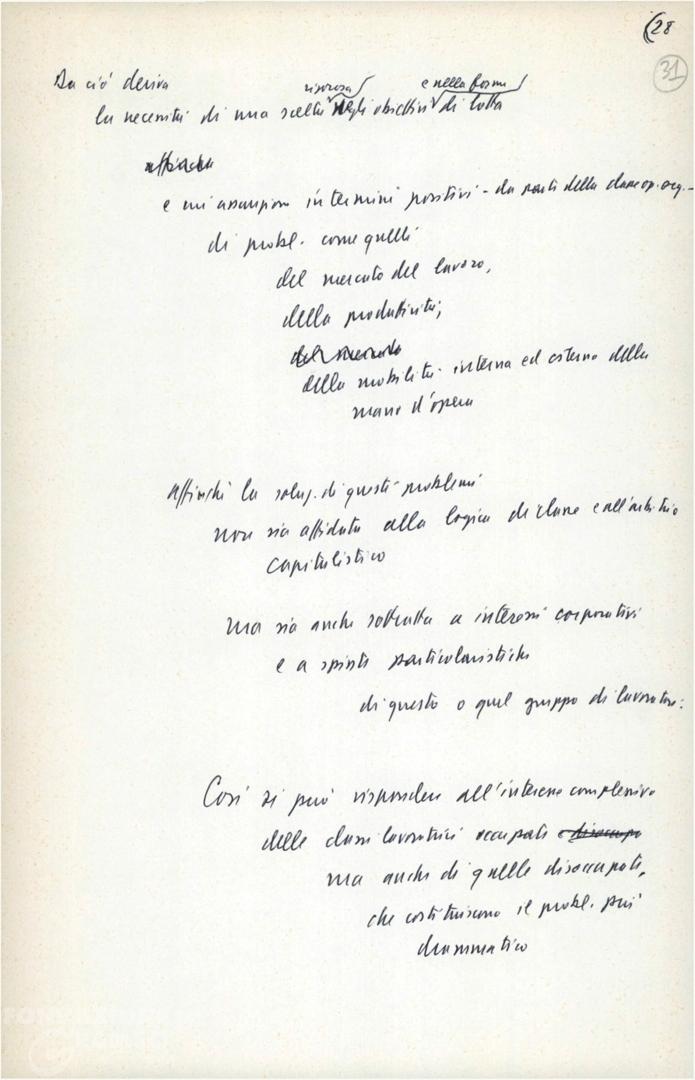 (28
31
Da ciò deriva
rigorosa e nella forma
la necessità di una scelta negli obiettivi di lotta
affinché
e un'assunzione in termini positivi - da parte della classe op. org. -
di probl. come quelli
del mercato del lavoro,
della produttività,
del mercato
della mobilità interna ed esterna della
mano d'opera
Affinché la soluz. di questi problemi
non sia affidata alla logica di classe e all'arbitrio
capitalistico
ma sia anche sottratta a interessi corporativi
e a spinte particolaristiche
di questo o quel gruppo di lavoratori.
Così si può rispondere all'interesse complessivo
delle classi lavoratrici occupate e disoccupa
ma anche di quelle disoccupate,
che costituiscono il probl. più
drammatico